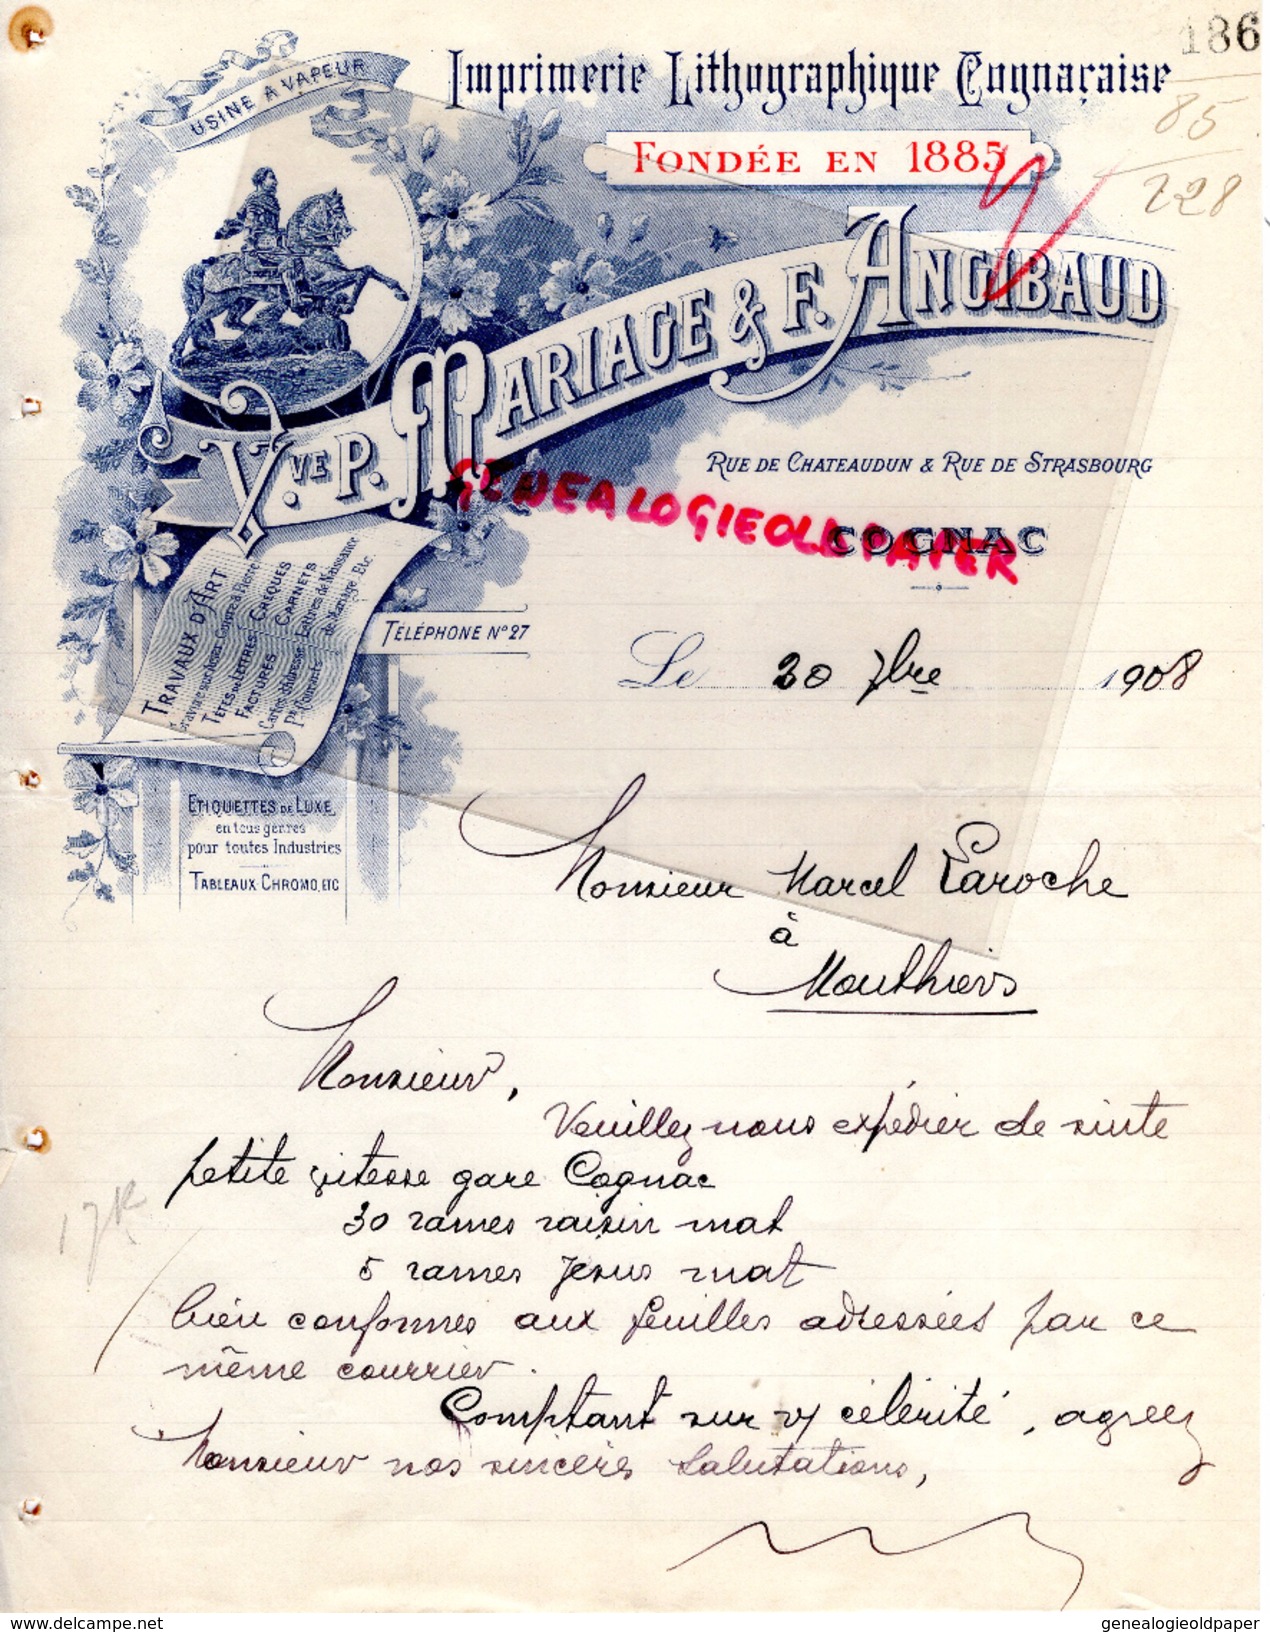 186
85
228
USINE A VAPEUR
Imprimerie Lithographique Cognaçaise
FONDÉE EN 1885
V.VE P. MARIAGE & F. ANGIBAUD
RUE DE CHATEAUDUN & RUE DE STRASBOURG
GENEALOGIEOLDPAPIER
COGNAC
TRAVAUX D'ART
Gravure sur heliog. Cuivre & Pierre
TÊTES DE LETTRES CHÈQUES
FACTURES CARNETS
Cartes d'Adresse Lettres de Naissance
Px Courants de Mariage, Etc.
TÉLÉPHONE N° 27
Le 20 7bre 1908
ETIQUETTES DE LUXE
en tous genres
pour toutes Industries
TABLEAUX CHROMO, ETC
Monsieur Marcel Laroche
à
Mouthiers
Monsieur,
Veuillez nous expédier de suite
petite vitesse gare Cognac
17 K
30 rames raisin mat
5 rames Jesus mat
bien conformes aux feuilles adressées par ce
même courrier.
Comptant sur v/ célérité, agréez
Monsieur nos sincères salutations,
www.delcampe.net
genealogieoldpaper